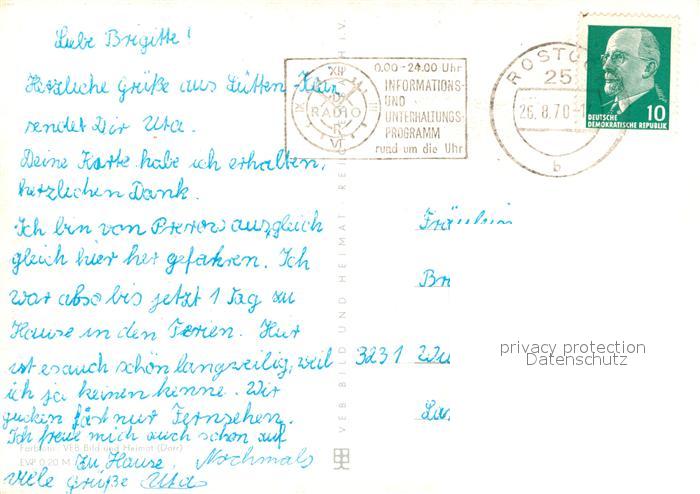 Liebe Brigitte!
Herzliche Grüße aus Lütten-Klein
sendet Dir Uta.
Deine Karte habe ich erhalten,
herzlichen Dank.
Ich bin von Prerow aus gleich
gleich hier her gefahren. Ich
war also bis jetzt 1 Tag zu
Hause in den Ferien. Hier
ist es auch schön langweilig, weil
ich ja keinen kenne. Wir
gucken fast nur Fernsehen.
Ich freue mich auch schon auf
zu Hause. Nochmals
viele Grüße Uta
Farbfoto: VEB Bild und Heimat (Darr)
EVP 0,20 M
VEB BILD UND HEIMAT
0.00-24.00 Uhr
INFORMATIONS-
UND
UNTERHALTUNGS-
PROGRAMM
rund um die Uhr
XII
IX RADIO III
VI
ROSTO
25
26.8.70-1
b
DEUTSCHE
DEMOKRATISCHE REPUBLIK
10
Fräulein
Br
3231 Wu
La
privacy protection
Datenschutz